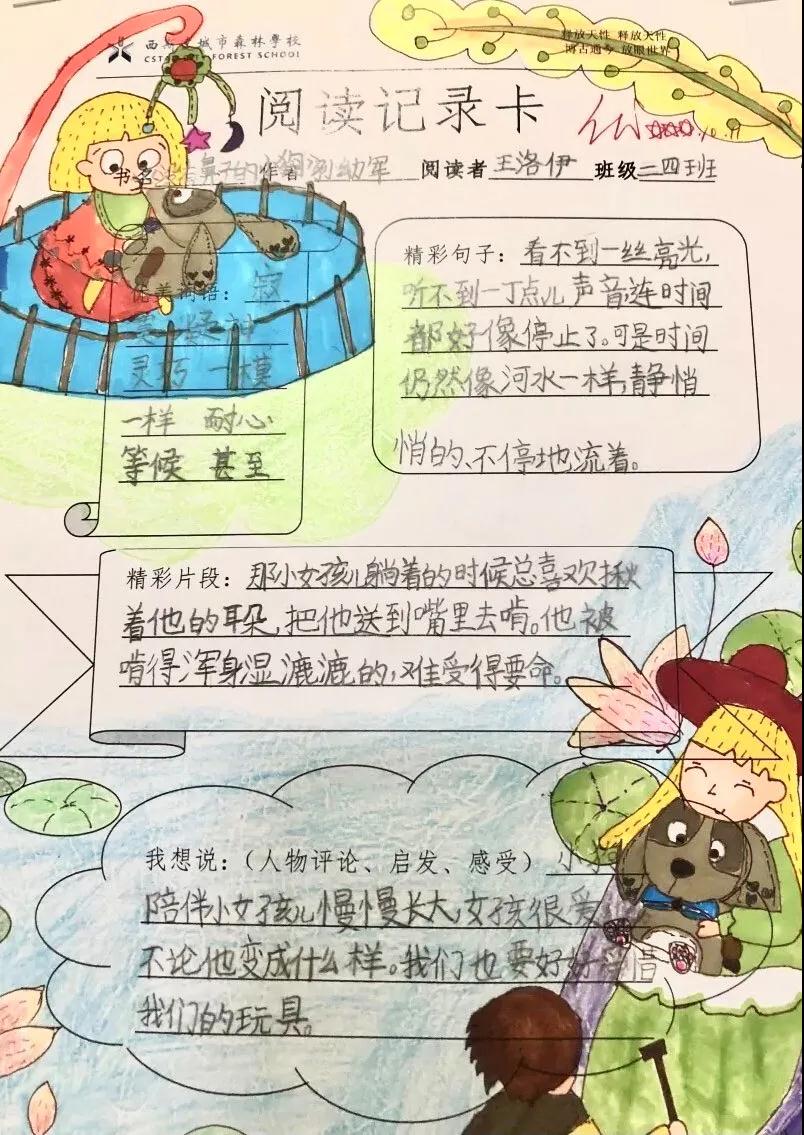 城市森林學校
FOREST SCHOOL
释放天性 释放天性
博古通今 放眼世界
阅读记录卡
书名 鼻子的小狗 作者 刘幼军 阅读者 王洛伊 班级 二四班
精彩句子：看不到一丝亮光，
听不到一丁点儿声音，连时间
都好像停止了。可是时间
仍然像河水一样，静悄
悄的、不停地流着。
优美词语：寂
灵巧 一模
一样 耐心
等候 甚至
精彩片段：那小女孩儿躺着的时候总喜欢揪
着他的耳朵，把他送到嘴里去啃。他被
啃得浑身湿漉漉的，难受得要命。
我想说：（人物评论、启发、感受）小
陪伴小女孩儿慢慢长大，女孩很爱
不论他变成什么样。我们也要好好 惜
我们的玩具。